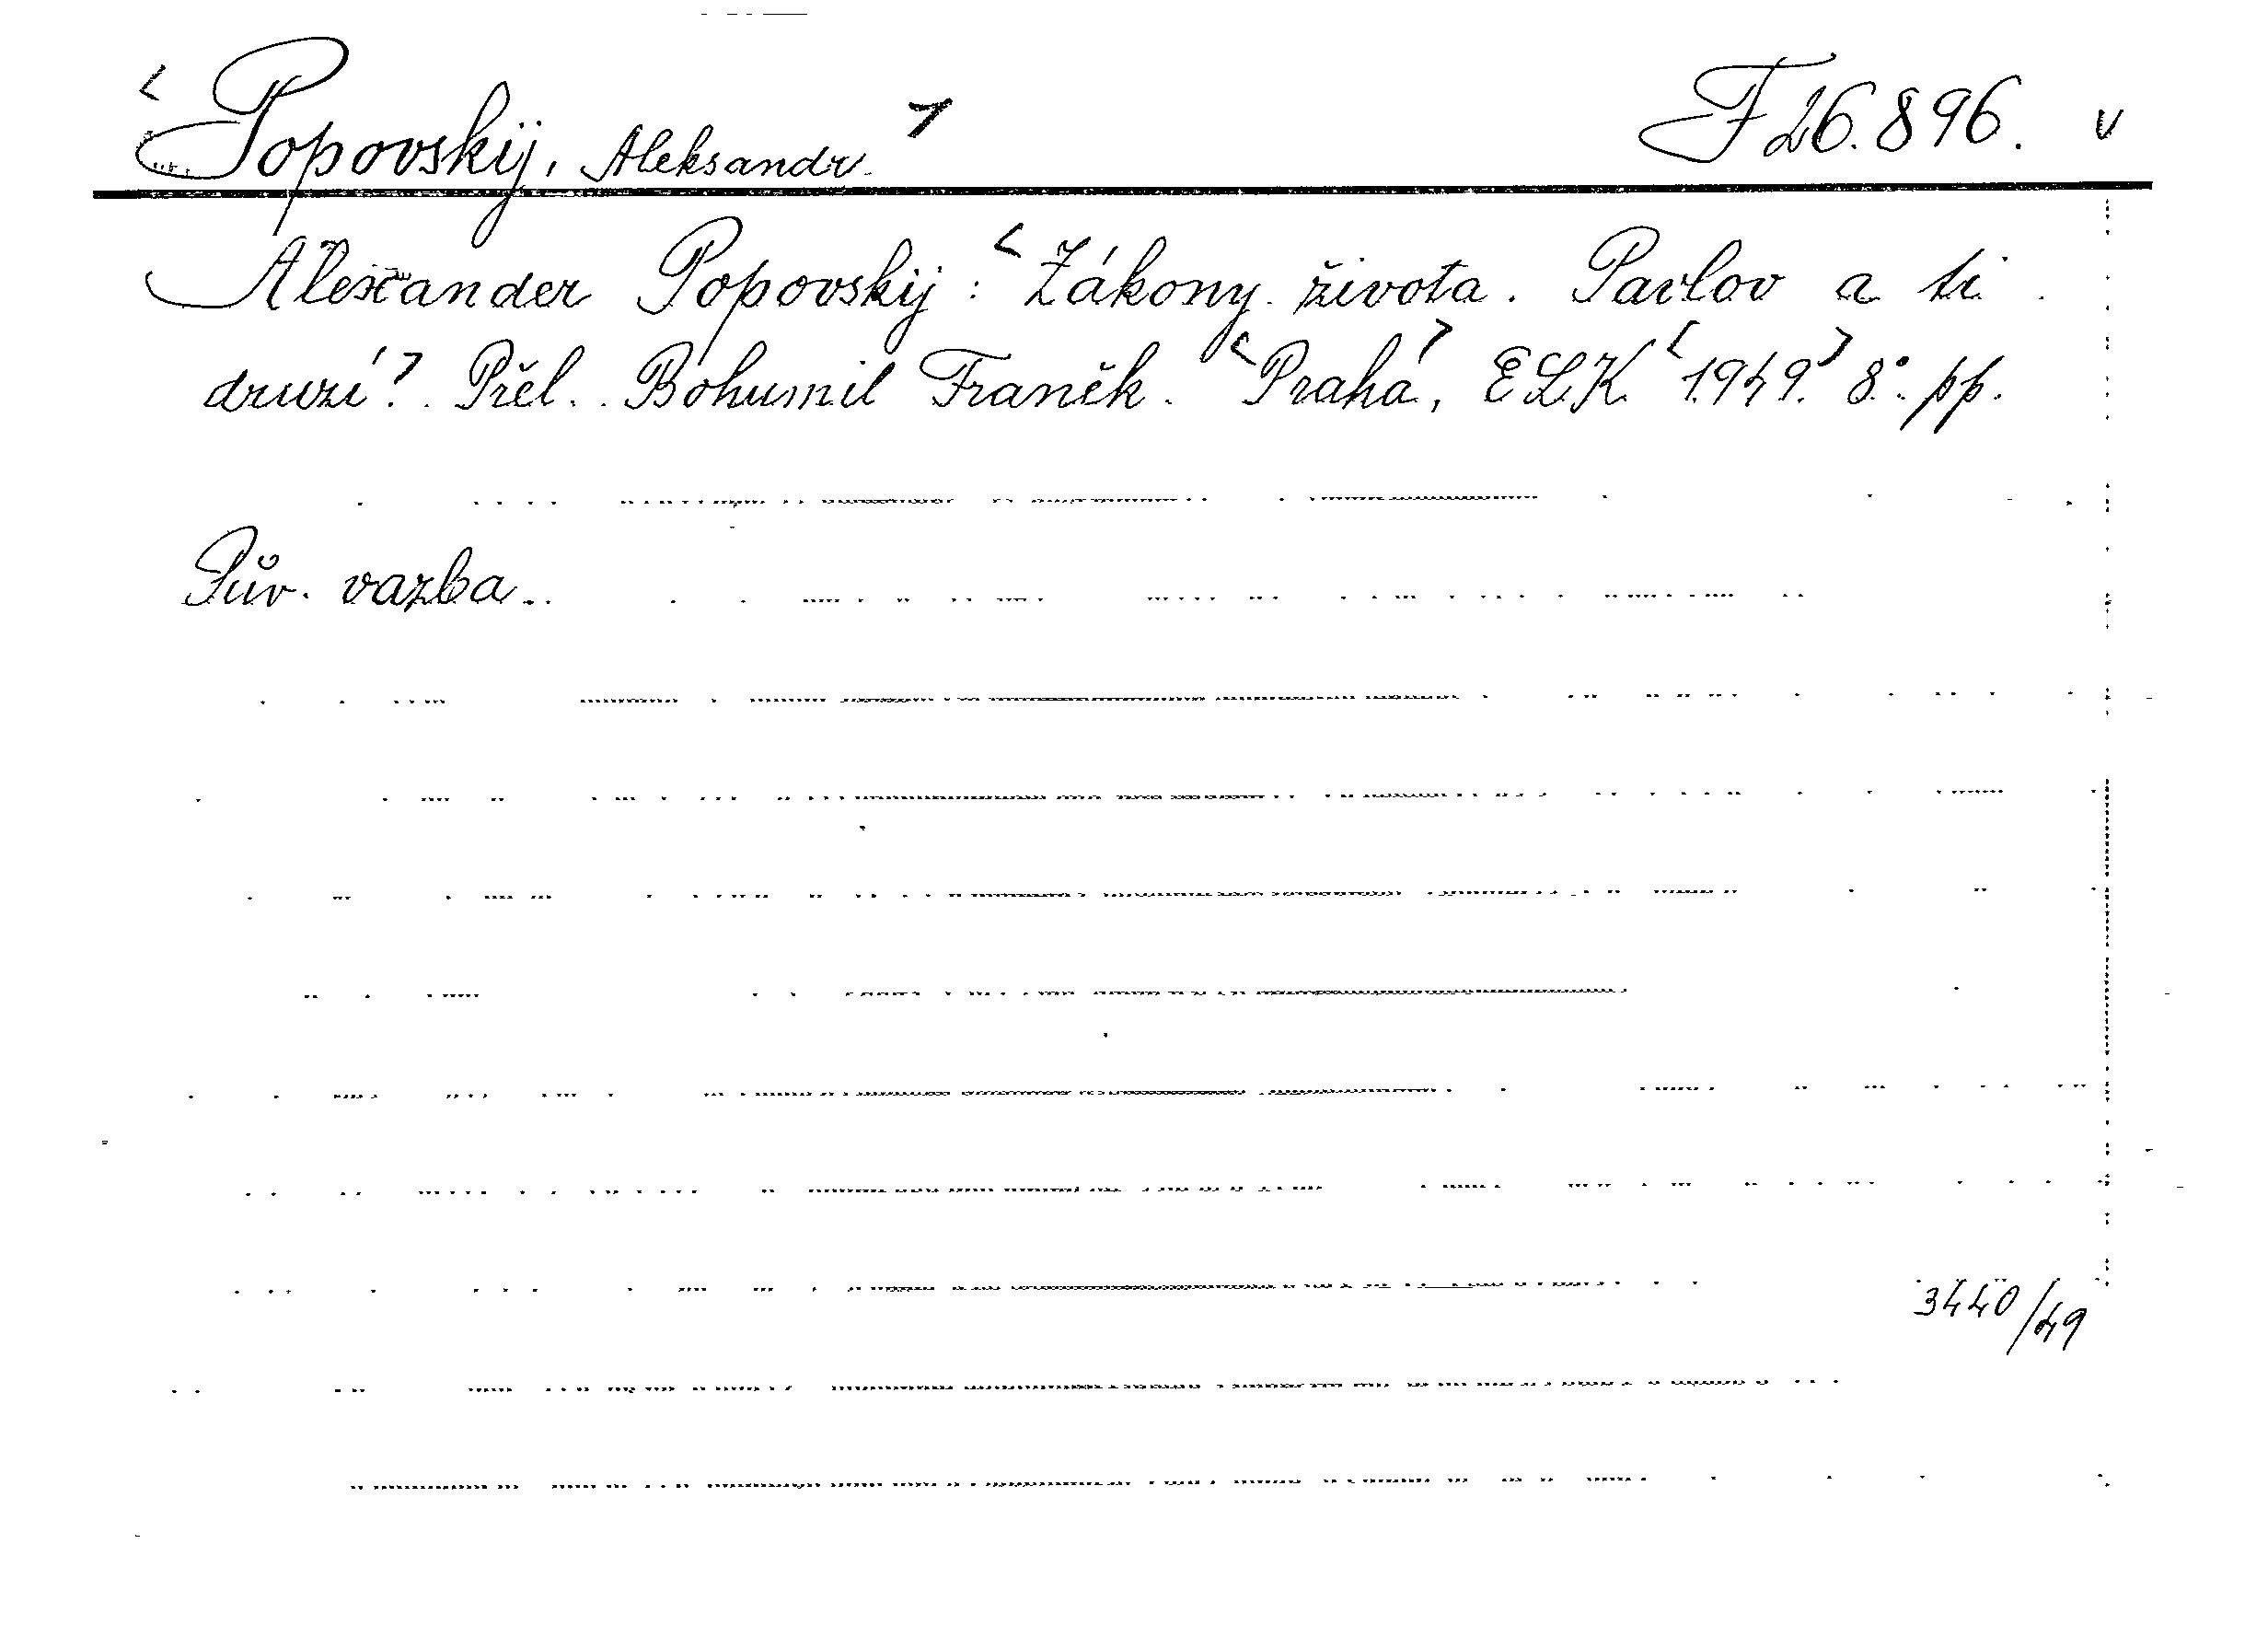 < Popovskij, Aleksandr > F 26.896. v
Alexander Popovskij: <Zákony života. Pavlov a ti
druzí>. Přel. Bohumil Franěk. <Praha>, ELK <1949> 8°. pp.
Pův. vazba.
3440/49